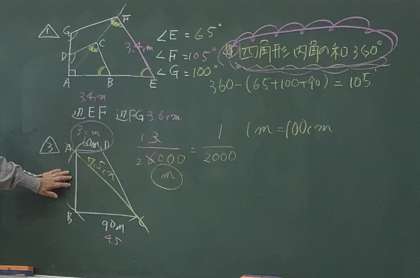 △1
G
F
D
C
A
B
E
3.4cm
∠E = 65°
∠F = 105°
∠G = 100°
四角形内角の和360°
360-(65+100+90) = 105
3.4cm
辺EF 辺FG 3.6cm
△3
3cm
60m
A
D
7.5cm
B
C
90m
4.5
2000
m
= 1/2000
1m = 100cm